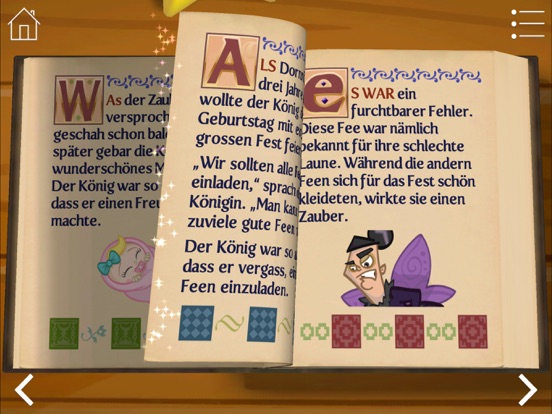 WAs der Zau
versproch
geschah schon bald
später gebar die K
wunderschönes M
Der König war so
dass er einen Freu
machte.
ALS Dorn
drei Jahre
wollte der König
Geburtstag mit e
grossen Fest feie
„Wir sollten alle F
einladen,“ sprach
Königin. „Man kan
zuviele gute Feen
Der König war so
dass er vergass, ei
Feen einzuladen.
eS WAR ein
furchtbarer Fehler.
Diese Fee war nämlich
bekannt für ihre schlechte
Laune. Während die andern
Feen sich für das Fest schön
kleideten, wirkte sie einen
Zauber.